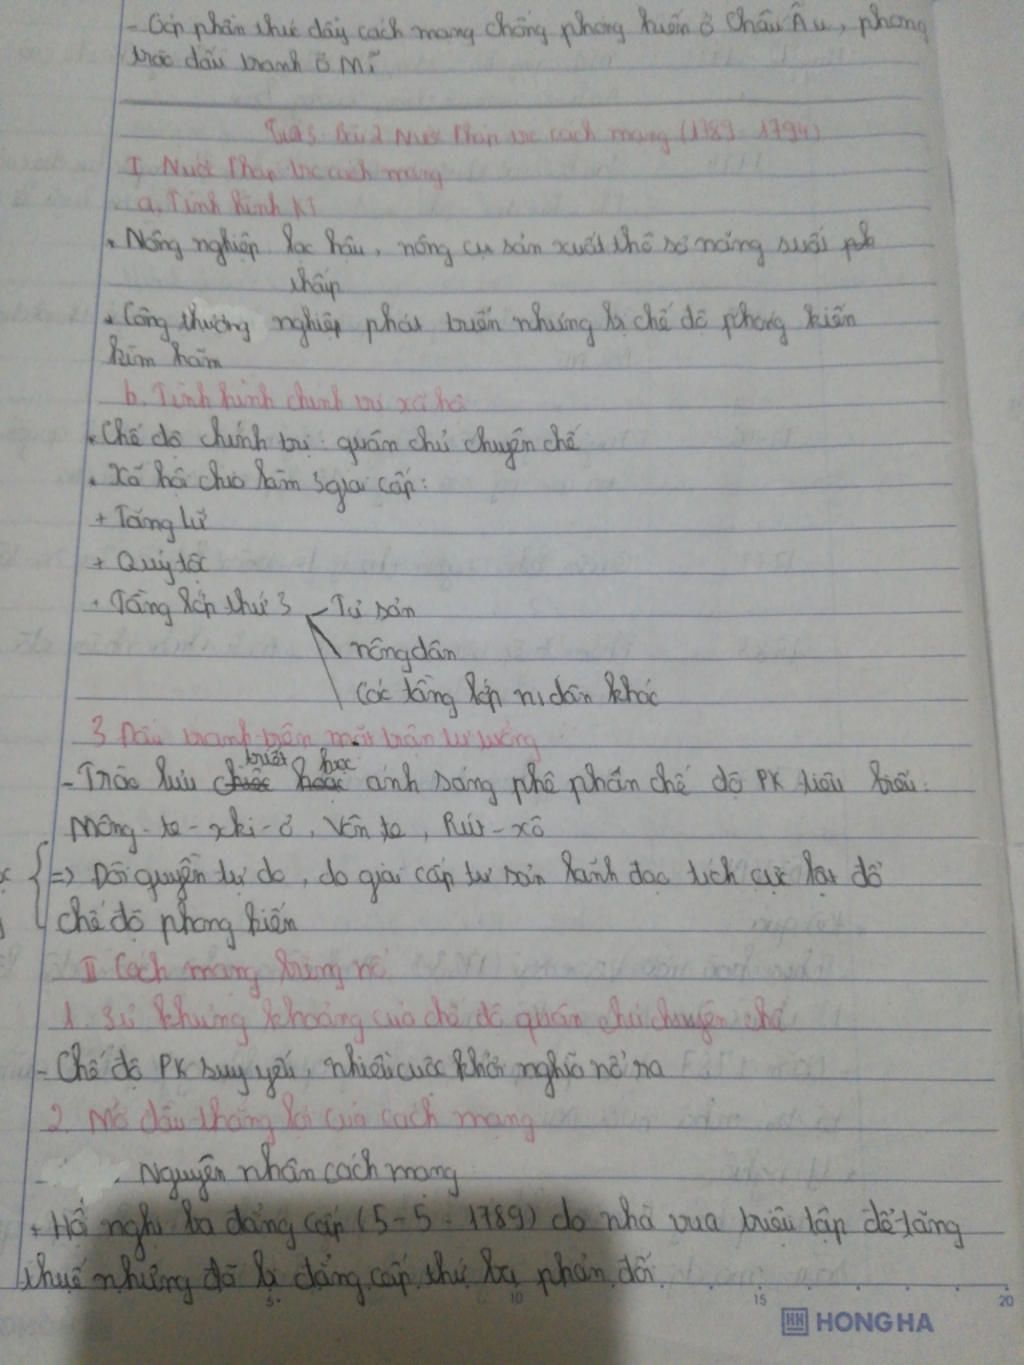 - Góp phần thúc đẩy cách mạng chống phong kiến ở Châu Âu, phong
trào đấu tranh ở Mĩ
Tiết 3 Bài 2 Nước Pháp trc cách mạng (1789 - 1794)
I. Nước Pháp trc cách mạng
a. Tình hình KT
. Nông nghiệp lạc hậu, nông cụ sản xuất thô sơ năng suất
thấp
. Công thương nghiệp phát triển nhưng bị chế độ phong kiến
kìm hãm
b. Tình hình chính trị xã hội
. Chế độ chính trị: quân chủ chuyên chế
. Xã hội chia làm 3 giai cấp:
+ Tăng lữ
+ Quý tộc
. Tầng lớp thứ 3 - Tư sản
nông dân
các tầng lớp n. dân khác
3 Đấu tranh trên mặt trận tư tưởng
triết học
- Trào lưu ánh sáng phê phán chế độ PK tiêu biểu:
Mông-te-xki-ơ, Vôn te, Rút-xô
=> Đòi quyền tự do, do giai cấp tư sản lãnh đạo tích cực lật đổ
chế độ phong kiến
II Cách mạng bùng nổ
1. Sự khủng khoảng của chế độ quân chủ chuyên chế
- Chế độ PK suy yếu, nhiều cuộc khởi nghĩa nổ ra
2. Mở đầu thắng lợi của cách mạng
- . Nguyên nhân cách mạng
+ Hộ nghị ba đẳng cấp (5-5-1789) do nhà vua triệu tập để tăng
thuế nhưng đã bị đẳng cấp thứ ba phản đối
5 10 15 20
HH HONG HA